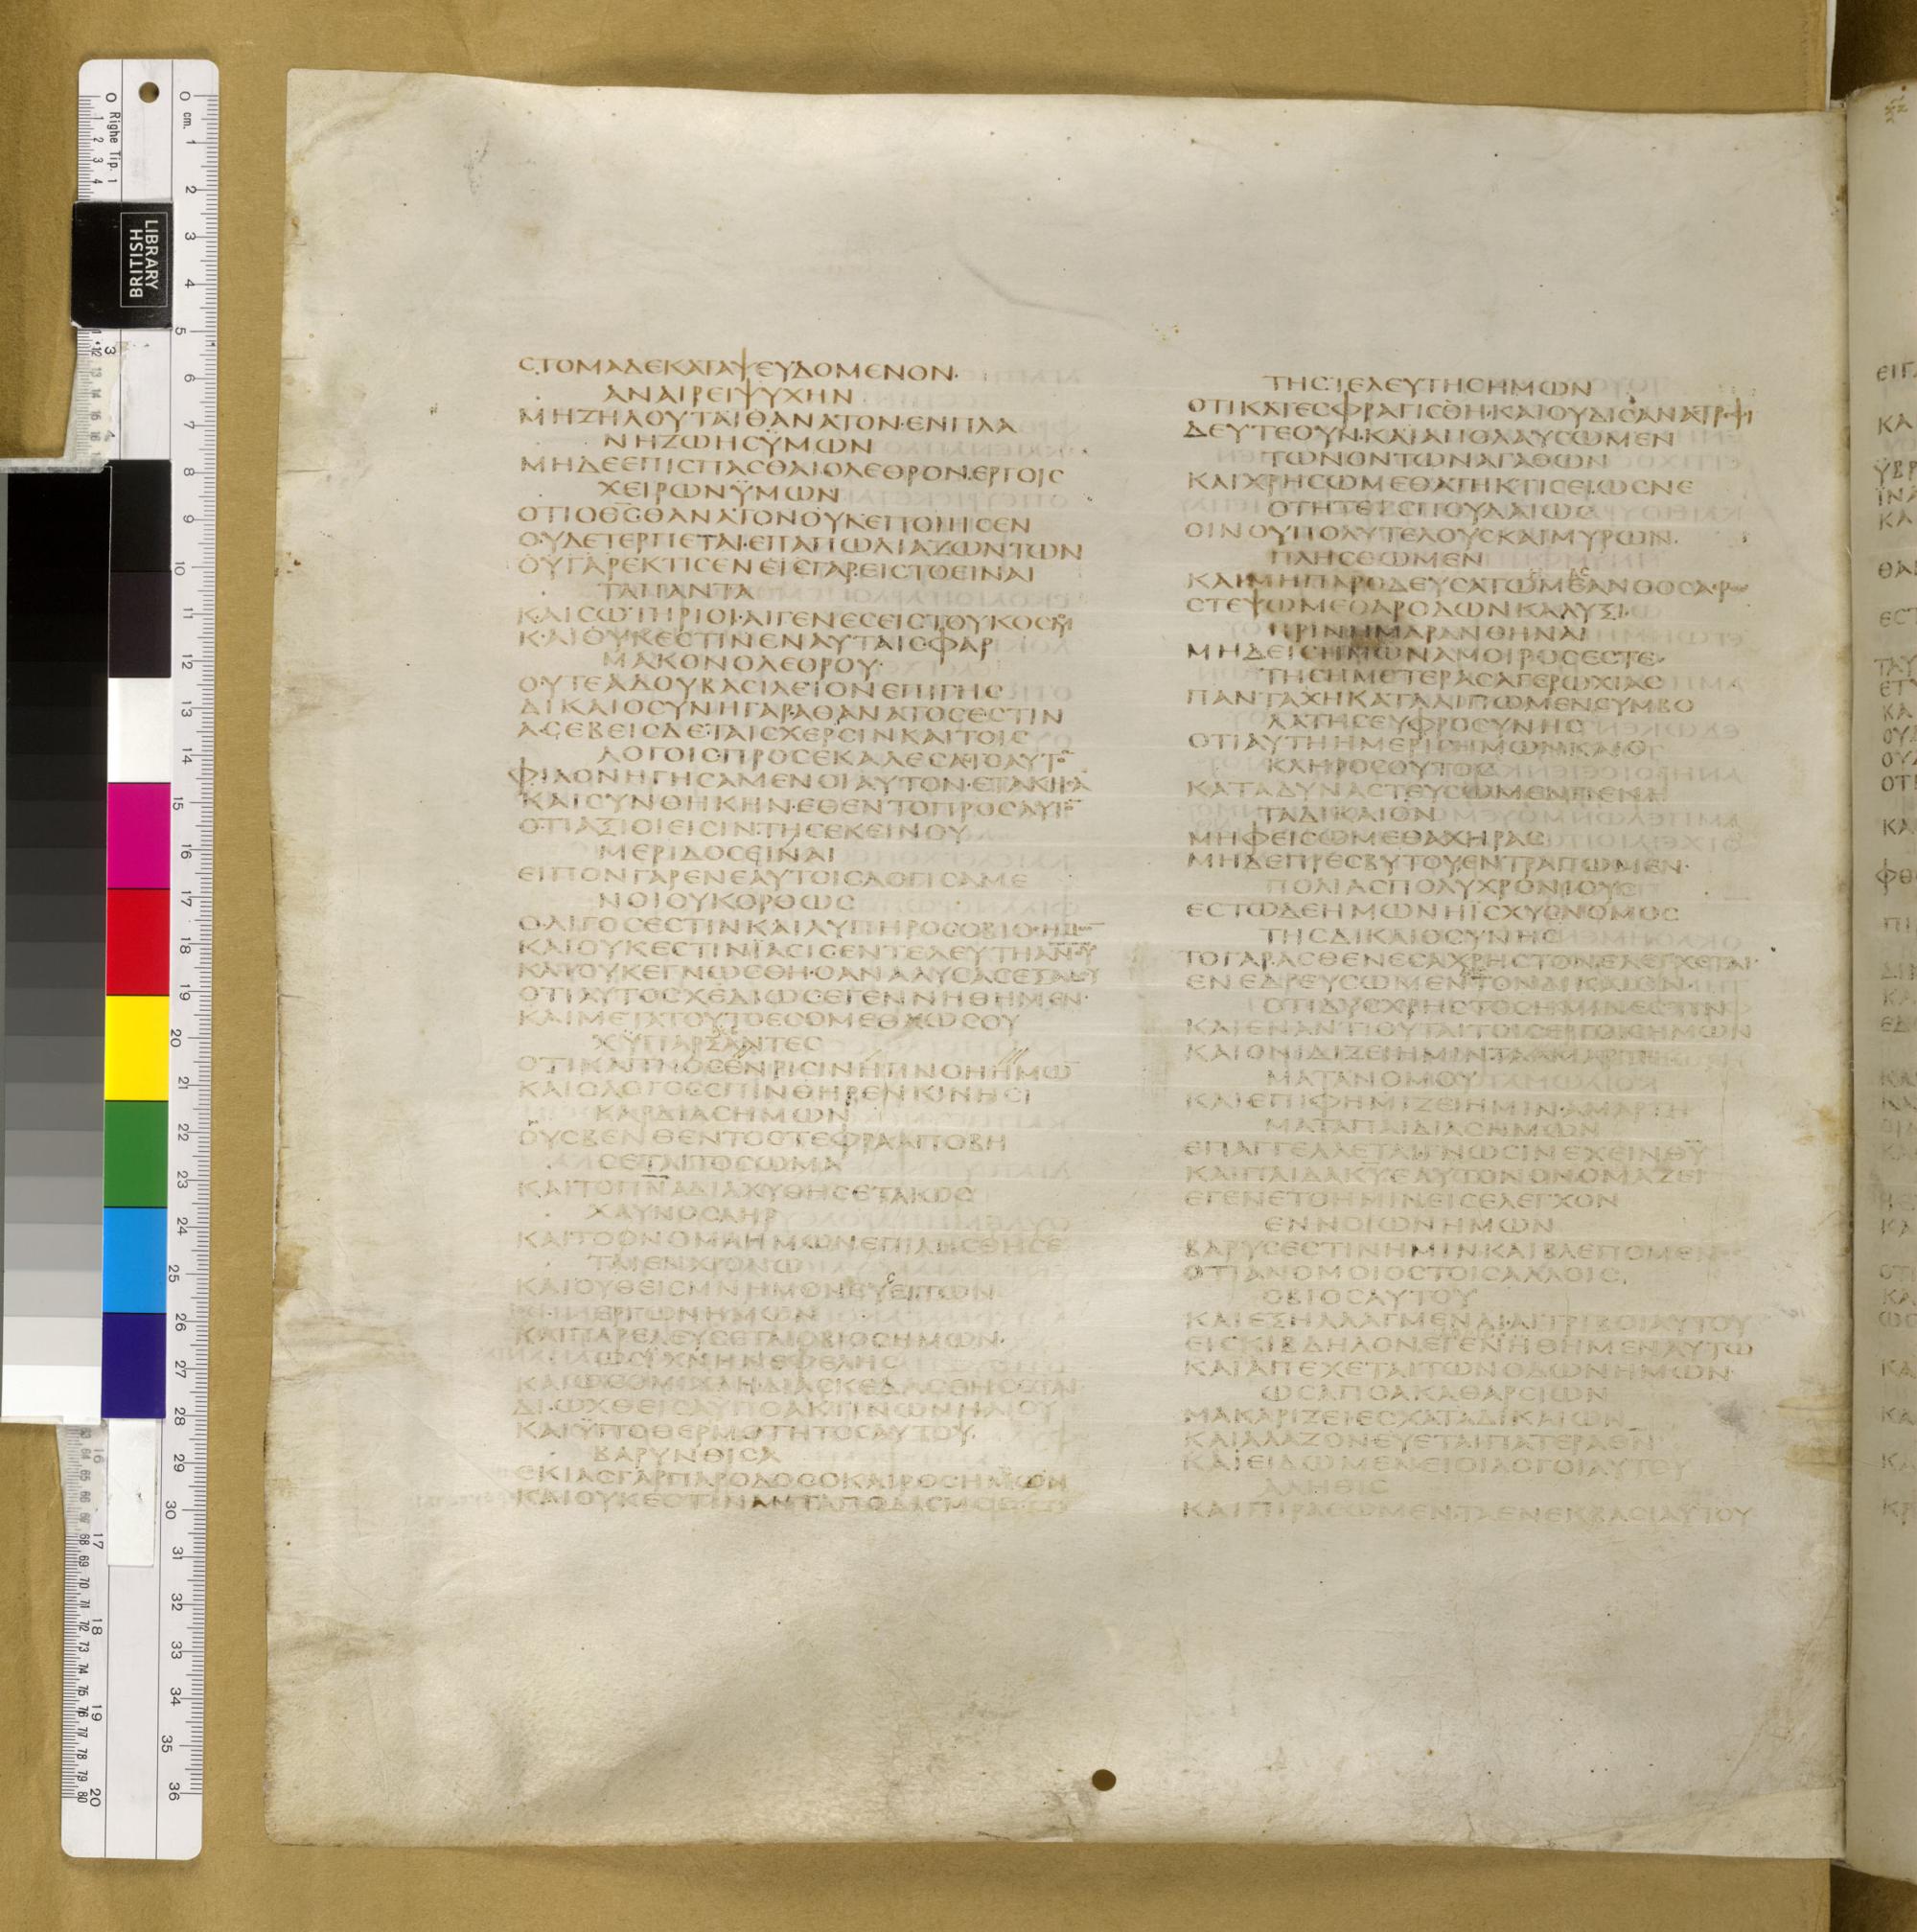 ϹΤΟΜΑΔΕΚΑΤΑΨΕΥΔΟΜΕΝΟΝ·
ΑΝΑΙΡΕΙΨΥΧΗΝ
ΜΗΖΗΛΟΥΤΑΙΘΑΝΑΤΟΝ·ΕΝΠΛΑ
ΝΗΖΩΗϹΫΜΩΝ
ΜΗΔΕΕΠΙϹΠΑϹΘΑΙΟΛΕΘΡΟΝ·ΕΡΓΟΙϹ
ΧΕΙΡΩΝΫΜΩΝ
ΟΤΙΟΘϹΘΑΝΑΤΟΝΟΥΚΕΠΟΙΗϹΕΝ
ΟΥΔΕΤΕΡΠΕΤΑΙ·ΕΠΑΠΩΛΙΑΖΩΝΤΩΝ
ΟΥΓΑΡΕΚΤΙϹΕΝΕΙϹΓΑΡ·ΕΙϹΤΟΕΙΝΑΙ
ΤΑΠΑΝΤΑ
ΚΑΙϹΩΤΗΡΙΟΙ·ΑΙΓΕΝΕϹΕΙϹΤΟΥΚΟϹΜΟΥ
ΚΑΙΟΥΚΕϹΤΙΝΕΝΑΥΤΑΙϹΦΑΡ
ΜΑΚΟΝΟΛΕΘΡΟΥ·
ΟΥΤΕΑΔΟΥΒΑϹΙΛΕΙΟΝΕΠΙΓΗϹ
ΔΙΚΑΙΟϹΥΝΗΓΑΡΑΘΑΝΑΤΟϹΕϹΤΙΝ
ΑϹΕΒΕΙϹΔΕΤΑΙϹΧΕΡϹΙΝΚΑΙΤΟΙϹ
ΛΟΓΟΙϹΠΡΟϹΕΚΑΛΕϹΑΤΟΑΥΤΟ̅
ΦΙΛΟΝΗΓΗϹΑΜΕΝΟΙΑΥΤΟΝ·ΕΤΑΚΗϹΑ̅
ΚΑΙϹΥΝΘΗΚΗΝ·ΕΘΕΝΤΟΠΡΟϹΑΥΤΟ̅
ΟΤΙΑΞΙΟΙΕΙϹΙΝ·ΤΗϹΕΚΕΙΝΟΥ
ΜΕΡΙΔΟϹΕΙΝΑΙ
ΕΙΠΟΝΓΑΡΕΝΕΑΥΤΟΙϹΛΟΓΙϹΑΜΕ
ΝΟΙΟΥΚΟΡΘΩϹ
ΟΛΙΓΟϹΕϹΤΙΝΚΑΙΛΥΠΗΡΟϹΟΒΙΟϹΗΜΩ̅
ΚΑΙΟΥΚΕϹΤΙΝΪΑϹΙϹΕΝΤΕΛΕΥΤΗΑΝΟΥ
ΚΑΙΟΥΚΕΓΝΩϹΘΗ·ΟΑΝΑΛΥϹΑϹΕΞΑΔΟΥ
ΟΤΙΑΥΤΟϹΧΕΔΙΩϹΕΓΕΝΝΗΘΗΜΕΝ·
ΚΑΙΜΕΤΑΤΟΥΤΟΕϹΟΜΕΘΑΩϹΟΥ
ΧΫΠΑΡΞΑΝΤΕϹ
ΟΤΙΚΑΠΝΟϹΕΝΡΙϹΙΝΗΠΝΟΗΗΜΩ̅
ΚΑΙΟΛΟΓΟϹϹΠΙΝΘΗΡΕΝΚΙΝΗϹΙ
ΚΑΡΔΙΑϹΗΜΩΝ
ΟΥϹΒΕΝΘΕΝΤΟϹΤΕΦΡΑΑΠΟΒΗ
ϹΕΤΑΙΤΟϹΩΜΑ
ΚΑΙΤΟΠΝΑΔΙΑΧΥΘΗϹΕΤΑΙΩϹ
ΧΑΥΝΟϹΑΗΡ
ΚΑΙΤΟΟΝΟΜΑΗΜΩΝΕΠΙΛΗϹΘΗϹΕ
ΤΑΙΕΝΧΡΟΝΩ
ΚΑΙΟΥΘΕΙϹΜΝΗΜΟΝΕΥϹΕΙΤΩΝ
ΕΡΓΩΝΗΜΩΝ
ΚΑΙΠΑΡΕΛΕΥϹΕΤΑΙΟΒΙΟϹΗΜΩΝ·
ΩϹΪΧΝΗΝΕΦΕΛΗϹ
ΚΑΙΩϹΟΜΙΧΛΗΔΙΑϹΚΕΔΑϹΘΗϹΕΤΑΙ
ΔΙΩΧΘΕΙϹΑΫΠΟΑΚΤΙΝΩΝΗΛΙΟΥ
ΚΑΙΫΠΟΘΕΡΜΟΤΗΤΟϹΑΥΤΟΥ
ΒΑΡΥΝΘΙϹΑ
ϹΚΙΑϹΓΑΡΠΑΡΟΔΟϹΟΚΑΙΡΟϹΗΜΩΝ
ΚΑΙΟΥΚΕϹΤΙΝΑΝΑΠΟΔΙϹΜΟϹ
ΤΗϹΤΕΛΕΥΤΗϹΗΜΩΝ
ΟΤΙΚΑΤΕϹΦΡΑΓΙϹΘΗ·ΚΑΙΟΥΔΙϹΑΝΑϹΤΡΕΦΙ
ΔΕΥΤΕΟΥΝ·ΚΑΙΑΠΟΛΑΥϹΩΜΕΝ
ΤΩΝΟΝΤΩΝΑΓΑΘΩΝ
ΚΑΙΧΡΗϹΩΜΕΘΑΤΗΚΤΙϹΕΙ·ΩϹΝΕ
ΟΤΗΤΕΙϹΠΟΥΔΑΙΩϹ
ΟΙΝΟΥΠΟΛΥΤΕΛΟΥϹΚΑΙΜΥΡΩΝ·
ΠΛΗϹΘΩΜΕΝ
ΚΑΙΜΗΠΑΡΟΔΕΥϹΑΤΩΜΕΑΝΘΟϹΑΕΡΟϹ
ϹΤΕΨΩΜΕΘΑΡΟΔΩΝΚΑΛΥΞΙ·
ΠΡΙΝΗΜΑΡΑΝΘΗΝΑΙ
ΜΗΔΕΙϹΗΜΩΝΑΜΟΙΡΟϹΕϹΤΕ·
ΤΗϹΗΜΕΤΕΡΑϹΑΓΕΡΩΧΙΑϹ
ΠΑΝΤΑΧΗΚΑΤΑΛΙΠΩΜΕΝϹΥΜΒΟ
ΛΑΤΗϹΕΥΦΡΟϹΥΝΗϹ
ΟΤΙΑΥΤΗΗΜΕΡΙϹΗΜΩΝΚΑΙΟ
ΚΛΗΡΟϹΟΥΤΟϹ
ΚΑΤΑΔΥΝΑϹΤΕΥϹΩΜΕΝΠΕΝΗ
ΤΑΔΙΚΑΙΟΝ
ΜΗΦΕΙϹΩΜΕΘΑΧΗΡΑϹ
ΜΗΔΕΠΡΕϹΒΥΤΟΥΕΝΤΡΑΠΩΜΕΝ·
ΠΟΛΙΑϹΠΟΛΥΧΡΟΝΙΟΥϹ
ΕϹΤΩΔΕΗΜΩΝΗΪϹΧΥϹΝΟΜΟϹ
ΤΗϹΔΙΚΑΙΟϹΥΝΗϹ
ΤΟΓΑΡΑϹΘΕΝΕϹΑΧΡΗϹΤΟΝΕΛΕΓΧΕΤΑΙ·
ΕΝΕΔΡΕΥϹΩΜΕΝΤΟΝΔΙΚΑΙΟΝ·
ΟΤΙΔΥϹΧΡΗϹΤΟϹΗΜΙΝΕϹΤΙΝ
ΚΑΙΕΝΑΝΤΙΟΥΤΑΙΤΟΙϹΕΡΓΟΙϹΗΜΩΝ
ΚΑΙΟΝΙΔΙΖΕΙΗΜΙΝ·ΤΑΑΜΑΡΤΗ
ΜΑΤΑΝΟΜΟΥ
ΚΑΙΕΠΙΦΗΜΙΖΕΙΗΜΙΝ·ΑΜΑΡΤΗ
ΜΑΤΑΠΑΙΔΙΑϹΗΜΩΝ
ΕΠΑΓΓΕΛΛΕΤΑΙΓΝΩϹΙΝΕΧΕΙΝΘΥ
ΚΑΙΠΑΙΔΑΚΥΕΑΥΤΟΝΟΝΟΜΑΖΕΙ
ΕΓΕΝΕΤΟΗΜΙΝΕΙϹΕΛΕΓΧΟΝ
ΕΝΝΟΙΩΝΗΜΩΝ
ΒΑΡΥϹΕϹΤΙΝΗΜΙΝΚΑΙΒΛΕΠΟΜΕΝ
ΟΤΙΑΝΟΜΟΙΟϹΤΟΙϹΑΛΛΟΙϹ
ΟΒΙΟϹΑΥΤΟΥ
ΚΑΙΕΞΗΛΛΑΓΜΕΝΑΙ·ΑΙΤΡΙΒΟΙΑΥΤΟΥ
ΕΙϹΚΙΒΔΗΛΟΝΕΓΕΝΗΘΗΜΕΝΑΥΤΩ
ΚΑΙΑΠΕΧΕΤΑΙΤΩΝΟΔΩΝΗΜΩΝ·
ΩϹΑΠΟΑΚΑΘΑΡϹΙΩΝ
ΜΑΚΑΡΙΖΕΙΕϹΧΑΤΑΔΙΚΑΙΩΝ
ΚΑΙΑΛΑΖΟΝΕΥΕΤΑΙΠΑΤΕΡΑΘΝ
ΚΑΙΕΙΔΩΜΕΝΕΙΟΙΛΟΓΟΙΑΥΤΟΥ
ΑΛΗΘΙϹ
ΚΑΙΠΙΡΑϹΩΜΕΝ·ΤΑΕΝΕΚΒΑϹΙΑΥΤΟΥ
BRITISH
LIBRARY